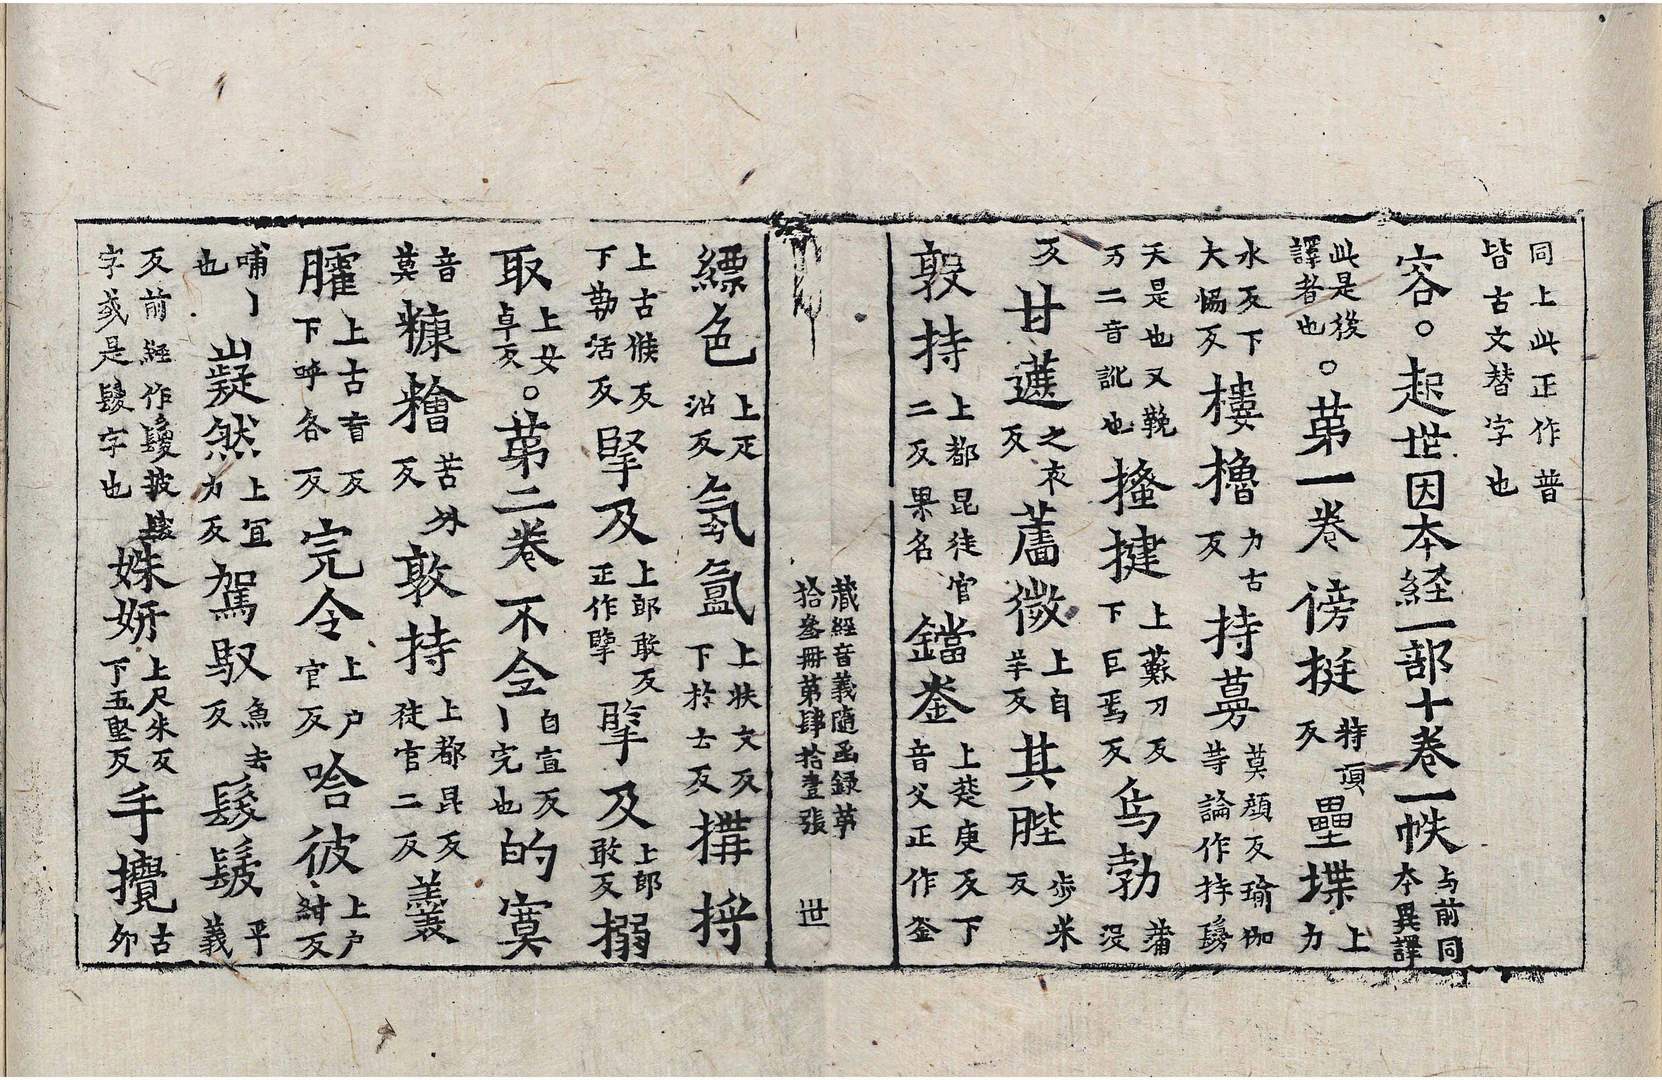 同上此正作普
皆古文替字也
容。起世因本経一部十卷一帙与前同本異譯
此是後譯者也。第一卷 傍挺特頂反 壘堞上力
水反下大惕反 樓櫓力古反 持蕚莫顔反瑜伽䓁論作持鬘
天是也又鞔万二音訛也 搔揵上蘇刀反下巨焉反 烏勃蒲没
反 甘遮之夜反 薔微上自羊反 其䏶步米反
㪟持上都昆徒官二反果名 鐺釜上楚庚反下音父正作釡
藏經音義隨函録苐
拾叁冊苐肆拾壹張 世
縹色上疋沼反 氛氳上扶文反下於士反 搆捋
上古猴反下勒活反 掔及上郎敢反正作擥 㨉及上郎敢反 搦
取上女卓反。苐二卷 不㒰自宣反丿完也 的寞
音莫 糠糩苦外反 敦持上都昆反徒官二反 羹
臛上古盲反下呼各反 完令上户官反 哈彼上户紺反
哺丿也 凝然上宜力反 駕馭魚去反 髲髲平義
反前經作鬘披髲字或是鬘字也 姝妍上尺朱反下五堅反 手攪古卯